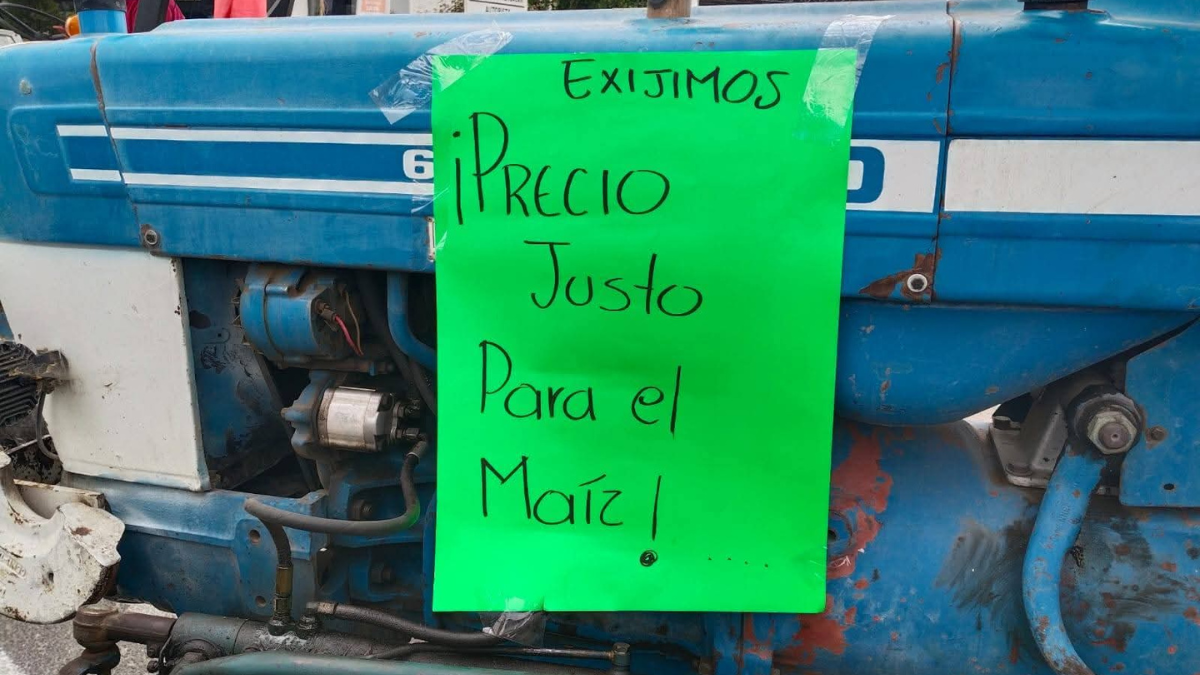 EXIJIMOS
¡PRECIO
Justo
Para el
Maíz!